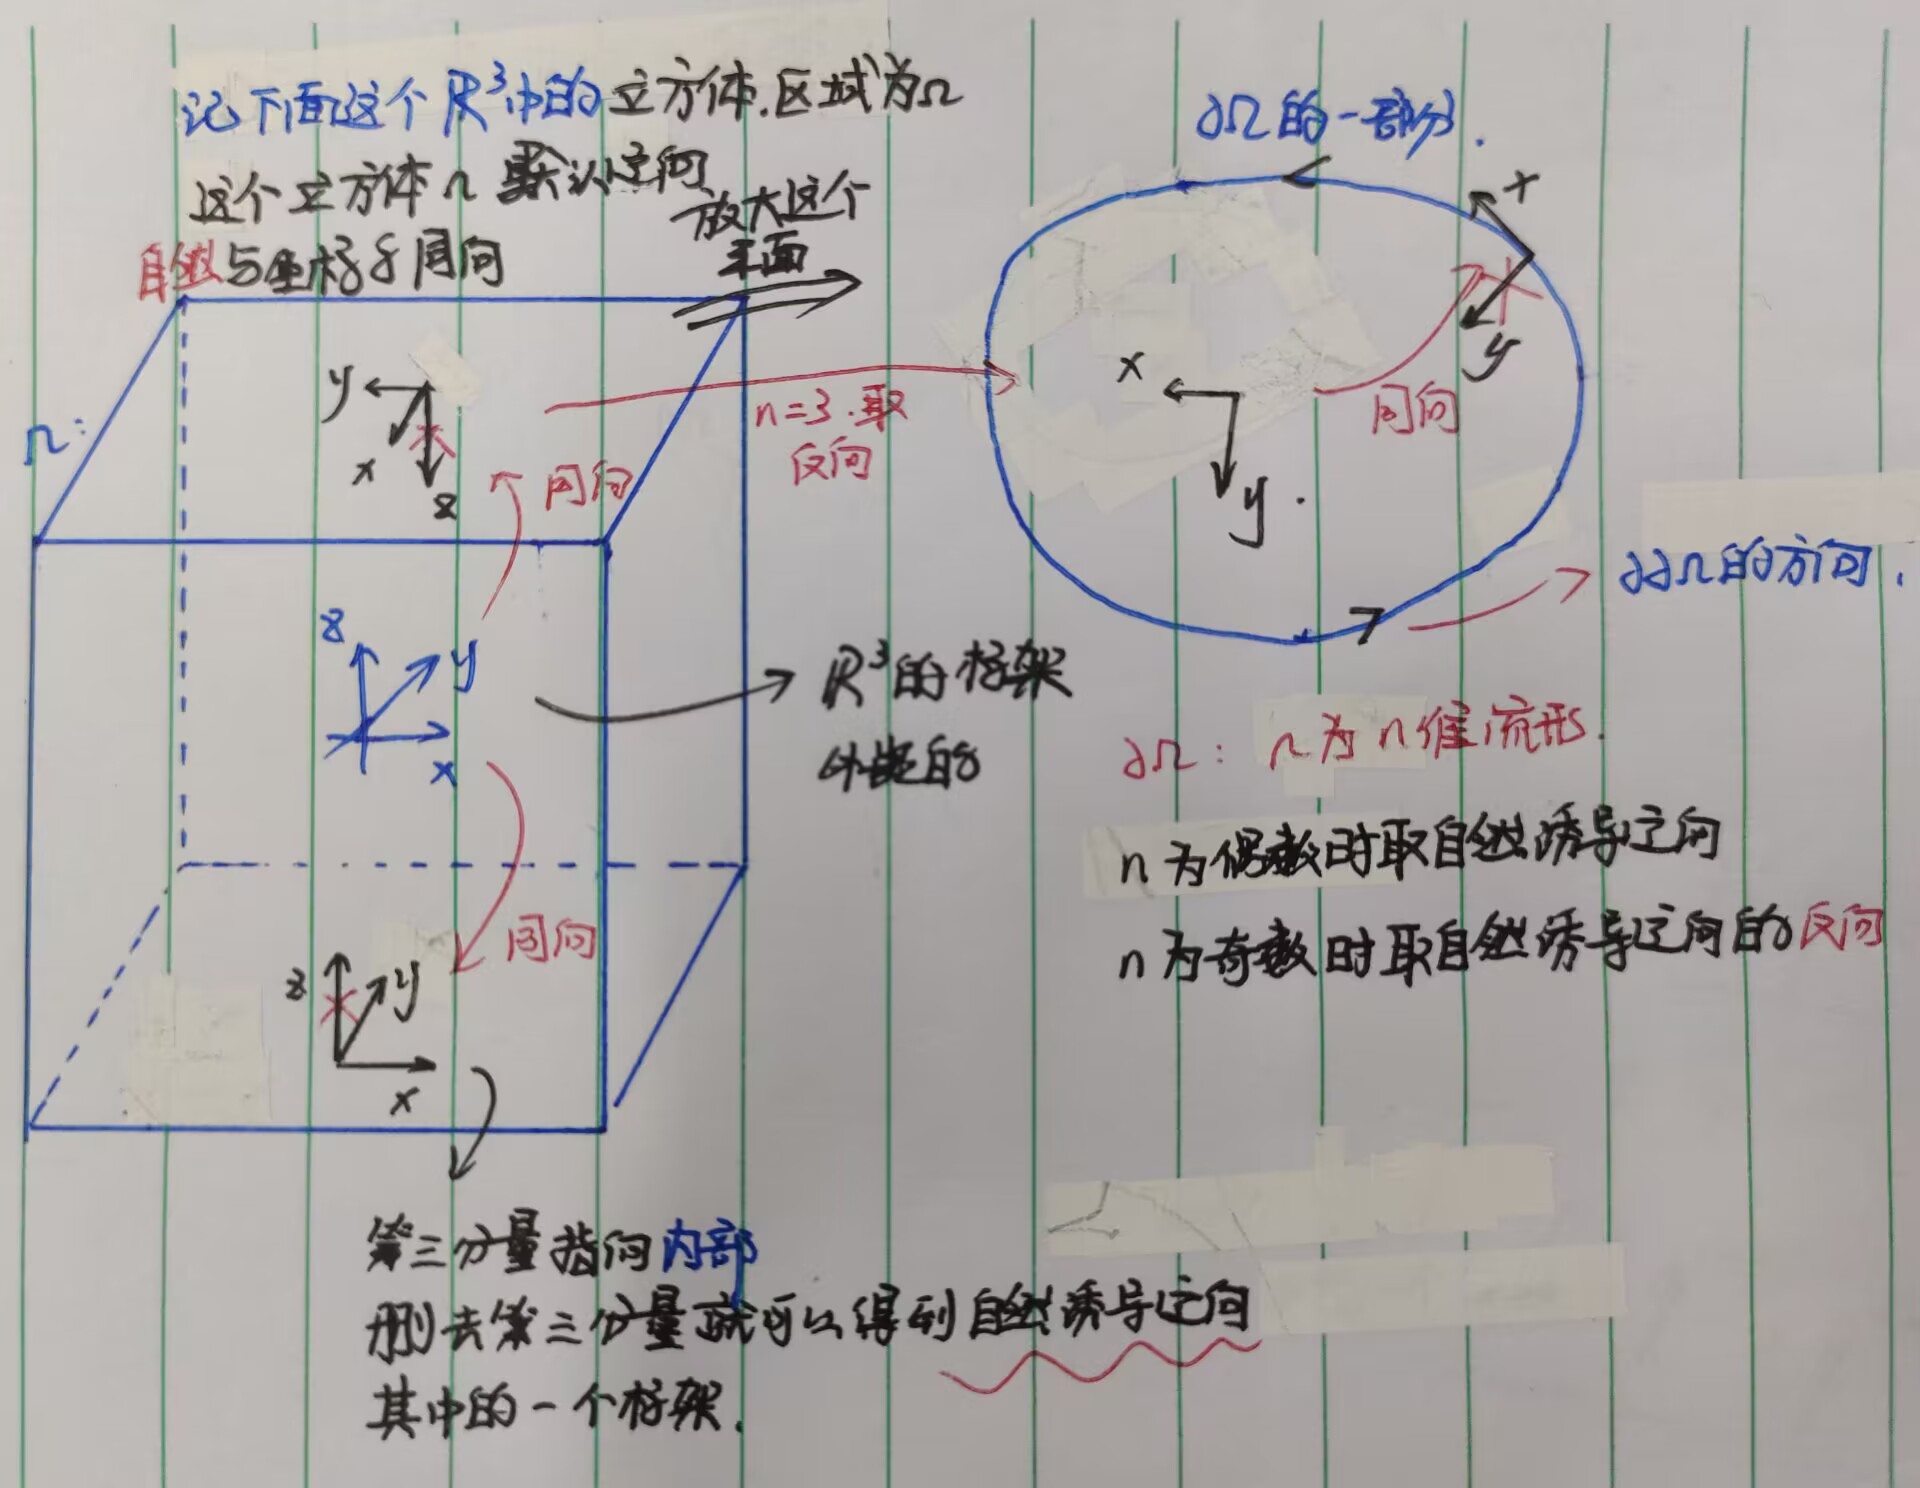 记下面这个 R³中的立方体.区域为Ω
这个立方体Ω 默认定向
自然与坐标系同向
放大这个
平面
Ω:
y
x
z
同向
n=3.取
反向
z
y
x
R³的标架
同向
z
y
x
第三分量指向内部
删去第三分量就可以得到自然诱导定向
其中的一个标架.
∂Ω的一部分.
x
y
x
y.
同向
∂∂Ω的方向.
∂Ω: Ω为n维流形.
n为偶数时取自然诱导定向
n为奇数时取自然诱导定向的反向